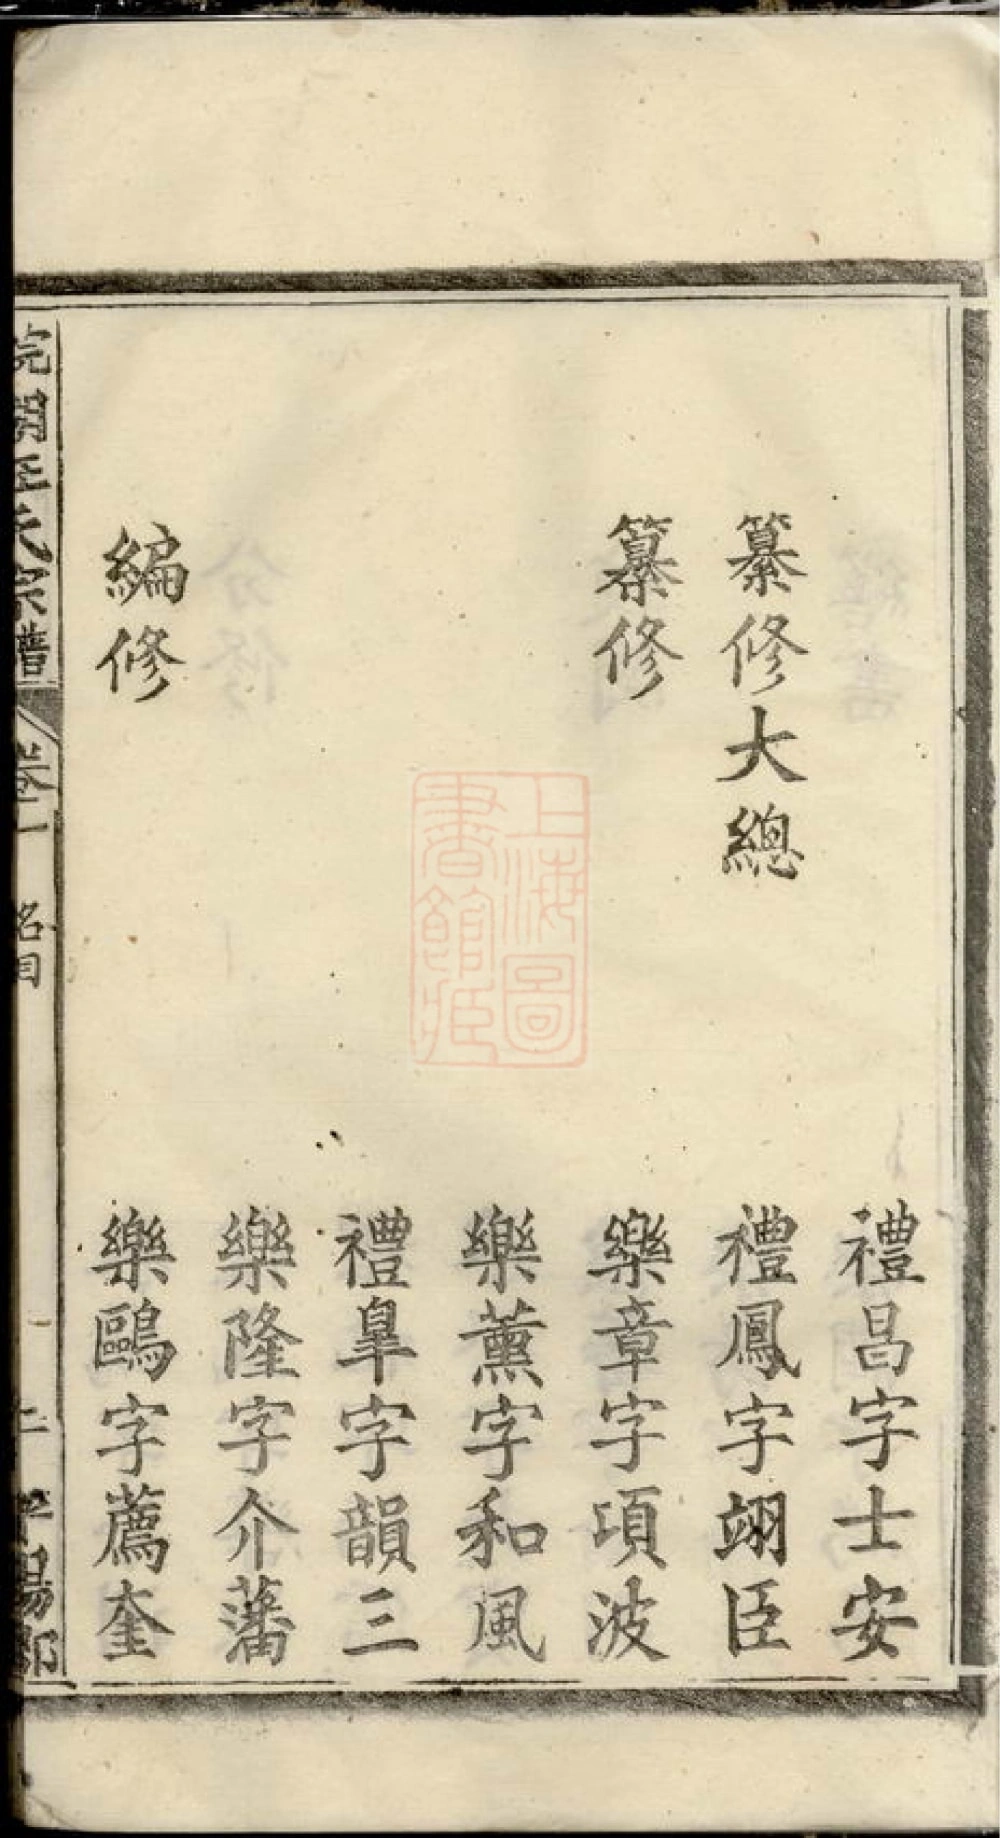 禮昌字士安
纂修大總
禮鳳字翊臣
纂修
樂章字項波
樂薰字和風
禮臯字韻三
樂隆字介藩
編修
樂鷗字薦奎
氏宗譜
卷一
名目
二
平陽郡
上海圖
書館藏